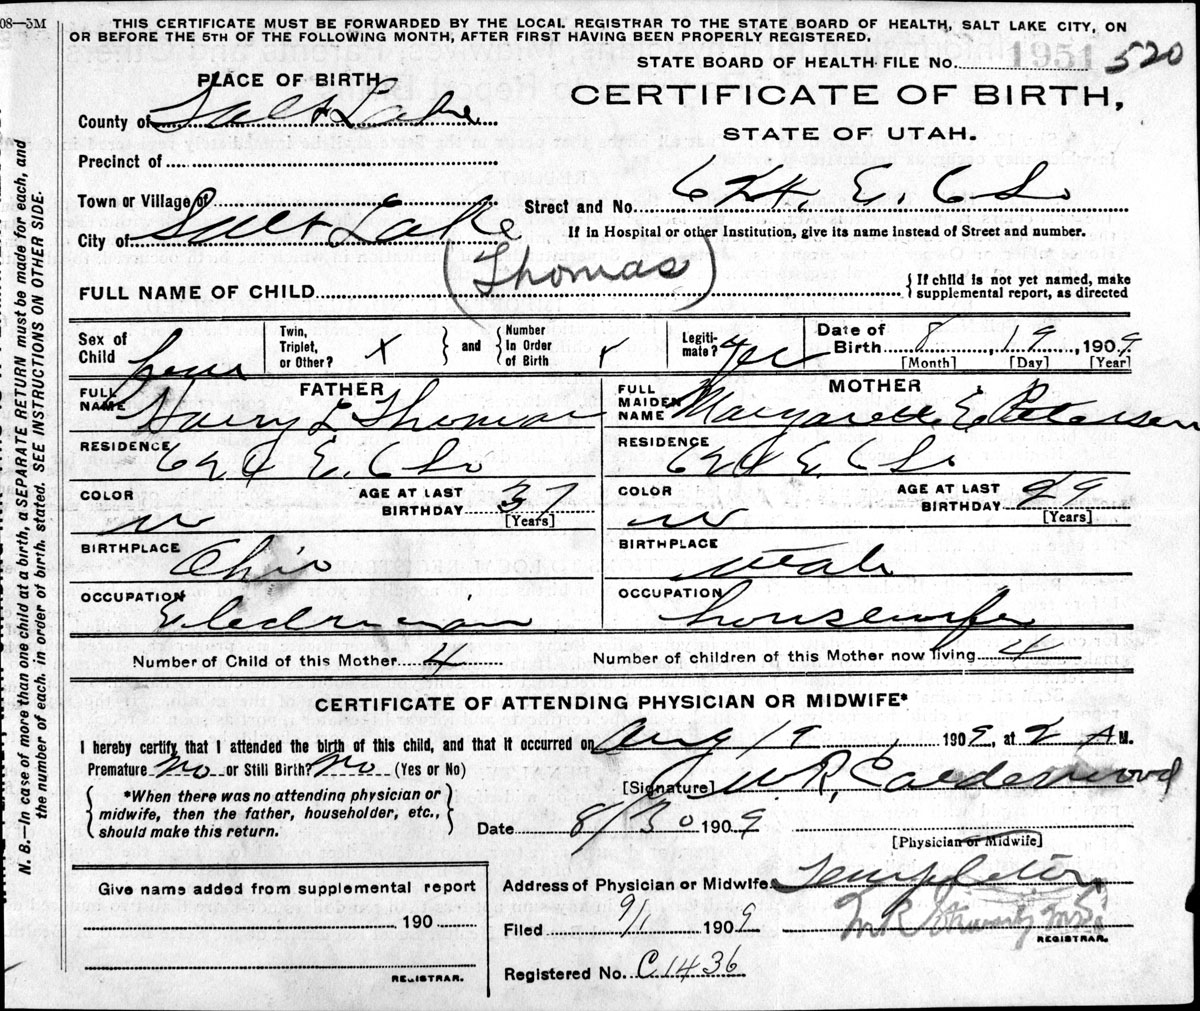 08—5M
THIS CERTIFICATE MUST BE FORWARDED BY THE LOCAL REGISTRAR TO THE STATE BOARD OF HEALTH, SALT LAKE CITY, ON
OR BEFORE THE 5TH OF THE FOLLOWING MONTH, AFTER FIRST HAVING BEEN PROPERLY REGISTERED.
STATE BOARD OF HEALTH FILE No. 1951 520
PLACE OF BIRTH
CERTIFICATE OF BIRTH,
STATE OF UTAH.
County of Salt Lake
Precinct of
Town or Village of
Street and No. 624. E. 6 So
City of Salt Lake
If in Hospital or other Institution, give its name instead of Street and number.
FULL NAME OF CHILD (Thomas) { If child is not yet named, make supplemental report, as directed
Sex of Child
Twin, Triplet, or Other? x } and { Number In Order of Birth x
Legitimate? yes
Date of Birth 8, 19, 1909
[Month] [Day] [Year]
FATHER
MOTHER
FULL NAME Harry L Thomas
FULL MAIDEN NAME Margarett E. Petersen
RESIDENCE 624 E. 6 So
RESIDENCE 624 E. 6 So
COLOR w AGE AT LAST BIRTHDAY 37 [Years]
COLOR w AGE AT LAST BIRTHDAY 29 [Years]
BIRTHPLACE Ohio
BIRTHPLACE Utah
OCCUPATION Electrician
OCCUPATION housewife
Number of Child of this Mother 4 Number of children of this Mother now living 4
CERTIFICATE OF ATTENDING PHYSICIAN OR MIDWIFE*
I hereby certify that I attended the birth of this child, and that it occurred on Aug 19, 1909, at 2 A M.
Premature no or Still Birth? no (Yes or No)
[Signature] W. R. Calderwood
{ *When there was no attending physician or midwife, then the father, householder, etc., should make this return. }
Date 8/30 1909
[Physician or Midwife]
Give name added from supplemental report
190
REGISTRAR.
Address of Physician or Midwife Templeton
Filed 9/1 1909
REGISTRAR.
Registered No. C.1436
N. B.—In case of more than one child at a birth, a SEPARATE RETURN must be made for each, and
the number of each, in order of birth, stated. SEE INSTRUCTIONS ON OTHER SIDE.